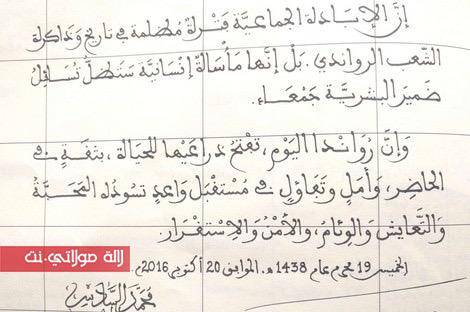 إنّ الإبادة الجماعيَّة فترةٌ مظلمة في تاريخ وذاكرة
الشّعب الرواندي. بل إنّها مأساةٌ إنسانيّة ستظلّ تُسائِلُ
ضميرَ البشريَّة جمعاء.
وإنَّ رواندا اليوم، تفتحُ ذراعيها للحياة، بثقةٍ في
الحاضر، وأملٍ وتفاؤلٍ في مستقبل واعدٍ تسوده المحبّةُ
والتّعايش والوئام، والأمنُ والاستقرار.
الخميس 19 محرم عام 1438 هـ. الموافق 20 أكتوبر 2016م.
لالة مولاتي.نت
محمد السادس